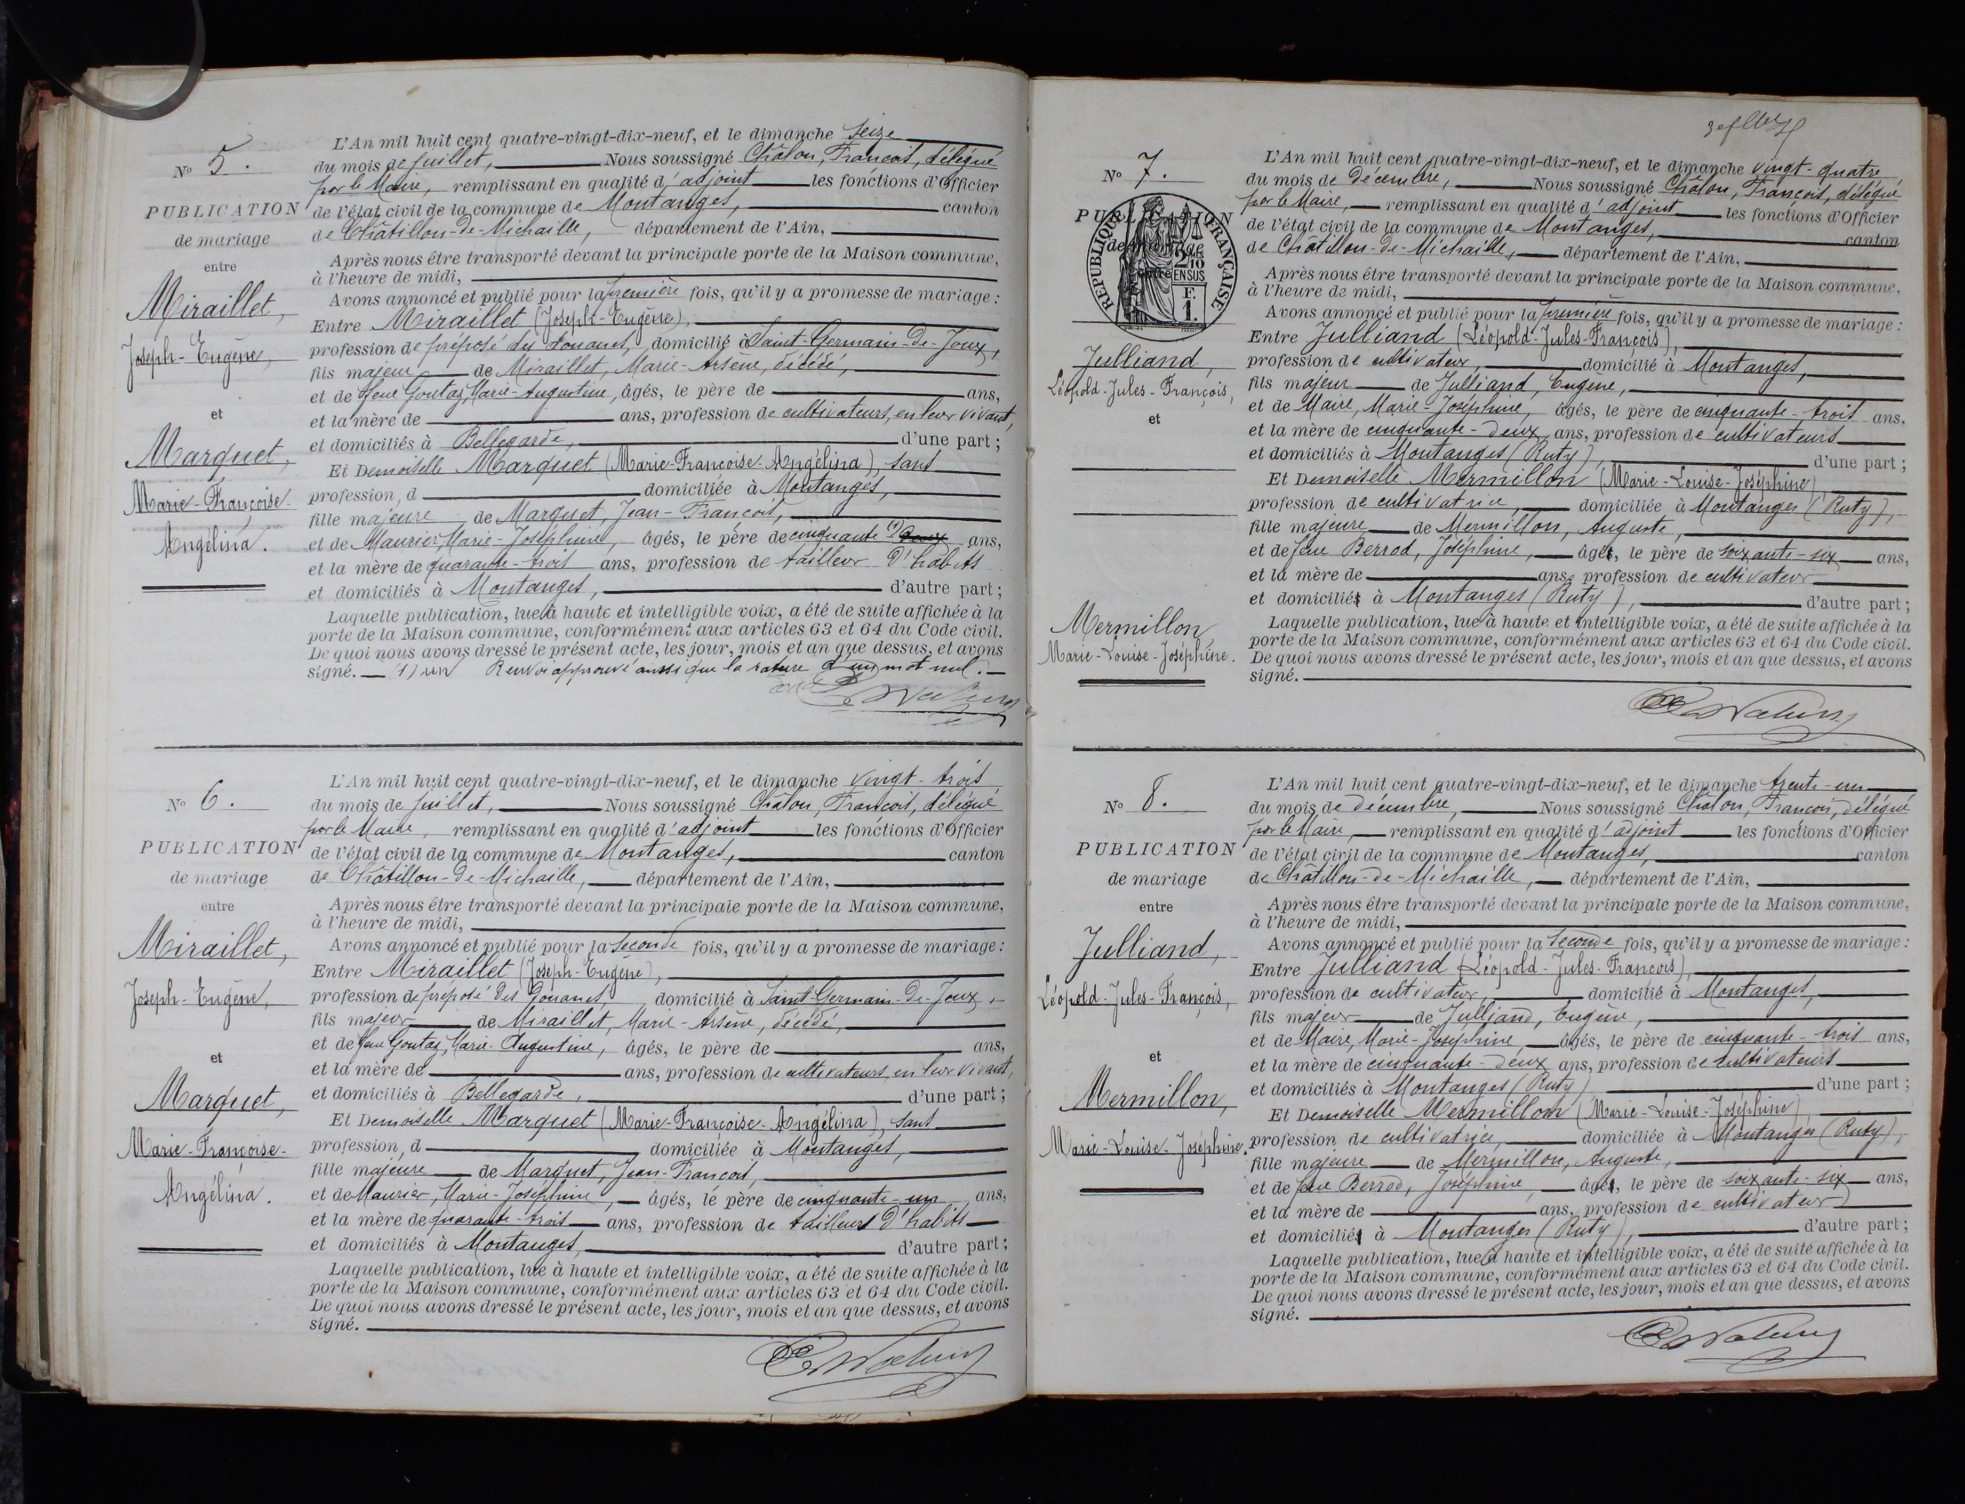 N° 5.
PUBLICATION
de mariage
entre
Miraillet,
Joseph-Eugène,
et
Marquet,
Marie-Françoise-
Angélina.
L'An mil huit cent quatre-vingt-dix-neuf, et le dimanche seize
du mois de juillet, Nous soussigné Châlon, François, délégué
par le Maire, remplissant en qualité d'adjoint les fonctions d'Officier
de l'état civil de la commune de Montanges, canton
de Châtillon-de-Michaille, département de l'Ain,
Après nous être transporté devant la principale porte de la Maison commune,
à l'heure de midi,
Avons annoncé et publié pour la première fois, qu'il y a promesse de mariage :
Entre Miraillet (Joseph-Eugène),
profession de préposé des douanes, domicilié à Saint-Germain-de-Joux,
fils majeur de Miraillet, Marie-Arsène, décédé,
et de feue Goutaz, Marie-Augustine, âgés, le père de ans,
et la mère de ans, profession de cultivateurs, en leur vivant,
et domiciliés à Bellegarde, d'une part ;
Et Demoiselle Marquet (Marie-Françoise-Angélina), sans
profession, d domiciliée à Montanges,
fille majeure de Marquet, Jean-François,
et de Maurier, Marie-Joséphine, âgés, le père de cinquante (1) deux ans,
et la mère de quarante-trois ans, profession de tailleur d'habits
et domiciliés à Montanges, d'autre part ;
Laquelle publication, lue à haute et intelligible voix, a été de suite affichée à la
porte de la Maison commune, conformément aux articles 63 et 64 du Code civil.
De quoi nous avons dressé le présent acte, les jour, mois et an que dessus, et avons
signé. 1) un Renvoi approuvé aussi que la rature d'un mot nul.
N° 6.
PUBLICATION
de mariage
entre
Miraillet,
Joseph-Eugène,
et
Marquet,
Marie-Françoise-
Angélina.
L'An mil huit cent quatre-vingt-dix-neuf, et le dimanche vingt-trois
du mois de juillet, Nous soussigné Châlon, François, délégué
par le Maire, remplissant en qualité d'adjoint les fonctions d'Officier
de l'état civil de la commune de Montanges, canton
de Châtillon-de-Michaille, département de l'Ain,
Après nous être transporté devant la principale porte de la Maison commune,
à l'heure de midi,
Avons annoncé et publié pour la seconde fois, qu'il y a promesse de mariage :
Entre Miraillet (Joseph-Eugène),
profession de préposé des Douanes domicilié à Saint-Germain-de-Joux,
fils majeur de Miraillet, Marie-Arsène, décédé,
et de feue Goutaz, Marie-Augustine, âgés, le père de ans,
et la mère de ans, profession de cultivateurs, en leur vivant,
et domiciliés à Bellegarde, d'une part ;
Et Demoiselle Marquet (Marie-Françoise-Angélina), sans
profession, d domiciliée à Montanges,
fille majeure de Marquet, Jean-François,
et de Maurier, Marie-Joséphine, âgés, le père de cinquante-un ans,
et la mère de quarante-trois ans, profession de tailleurs d'habits
et domiciliés à Montanges, d'autre part ;
Laquelle publication, lue à haute et intelligible voix, a été de suite affichée à la
porte de la Maison commune, conformément aux articles 63 et 64 du Code civil.
De quoi nous avons dressé le présent acte, les jour, mois et an que dessus, et avons
signé.
N° 7.
PUBLICATION
de mariage
entre
RÉPUBLIQUE FRANÇAISE
2/10 EN SUS
F.
1.
Julliand,
Léopold-Jules-François,
et
Mermillon,
Marie-Louise-Joséphine.
L'An mil huit cent quatre-vingt-dix-neuf, et le dimanche vingt-quatre
du mois de Décembre, Nous soussigné Châlon, François, délégué
par le Maire, remplissant en qualité d'adjoint les fonctions d'Officier
de l'état civil de la commune de Montanges, canton
de Châtillon-de-Michaille, département de l'Ain,
Après nous être transporté devant la principale porte de la Maison commune,
à l'heure de midi,
Avons annoncé et publié pour la première fois, qu'il y a promesse de mariage :
Entre Julliand (Léopold-Jules-François),
profession de cultivateur, domicilié à Montanges,
fils majeur de Julliand, Eugène,
et de Maire, Marie-Joséphine, âgés, le père de cinquante-trois ans,
et la mère de cinquante-deux ans, profession de cultivateurs
et domiciliés à Montanges (Ruty), d'une part ;
Et Demoiselle Mermillon (Marie-Louise-Joséphine)
profession de cultivatrice, domiciliée à Montanges (Ruty),
fille majeure de Mermillon, Auguste,
et de feue Berrod, Joséphine, âgé, le père de soixante-six ans,
et la mère de ans, profession de cultivateur
et domiciliés à Montanges (Ruty), d'autre part ;
Laquelle publication, lue à haute et intelligible voix, a été de suite affichée à la
porte de la Maison commune, conformément aux articles 63 et 64 du Code civil.
De quoi nous avons dressé le présent acte, les jour, mois et an que dessus, et avons
signé.
N° 8.
PUBLICATION
de mariage
entre
Julliand,
Léopold-Jules-François,
et
Mermillon,
Marie-Louise-Joséphine.
L'An mil huit cent quatre-vingt-dix-neuf, et le dimanche trente-un
du mois de décembre, Nous soussigné Châlon, François, délégué
par le Maire, remplissant en qualité d'adjoint les fonctions d'Officier
de l'état civil de la commune de Montanges, canton
de Châtillon-de-Michaille, département de l'Ain,
Après nous être transporté devant la principale porte de la Maison commune,
à l'heure de midi,
Avons annoncé et publié pour la seconde fois, qu'il y a promesse de mariage :
Entre Julliand (Léopold-Jules-François),
profession de cultivateur, domicilié à Montanges,
fils majeur de Julliand, Eugène,
et de Maire, Marie-Joséphine, âgés, le père de cinquante-trois ans,
et la mère de cinquante-deux ans, profession de cultivateurs
et domiciliés à Montanges (Ruty) d'une part ;
Et Demoiselle Mermillon (Marie-Louise-Joséphine),
profession de cultivatrice, domiciliée à Montanges (Ruty),
fille majeure de Mermillon, Auguste,
et de feue Berrod, Joséphine, âgé, le père de soixante-six ans,
et la mère de ans, profession de cultivateur
et domiciliés à Montanges (Ruty), d'autre part ;
Laquelle publication, lue à haute et intelligible voix, a été de suite affichée à la
porte de la Maison commune, conformément aux articles 63 et 64 du Code civil.
De quoi nous avons dressé le présent acte, les jour, mois et an que dessus, et avons
signé.